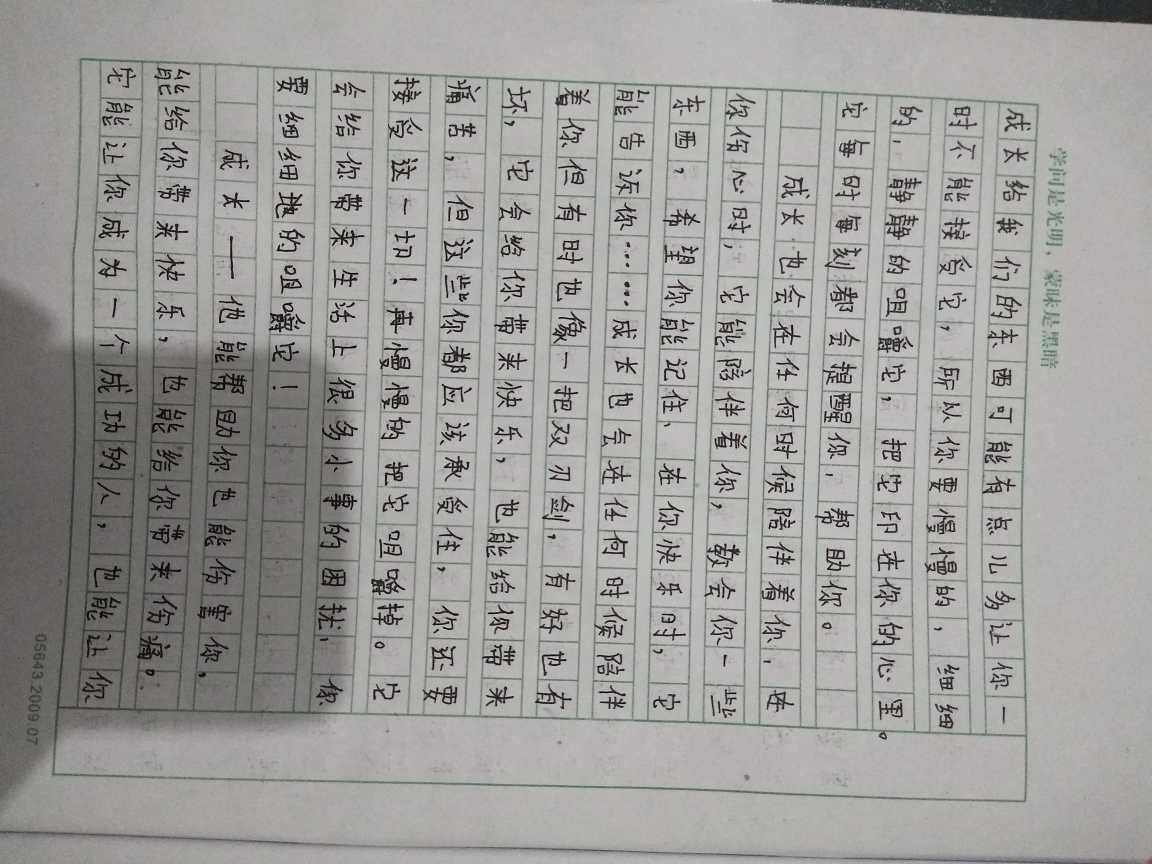 学问是光明，蒙昧是黑暗
成长给我们的东西可能有点儿多让你一
时不能接受它，所以你要慢慢的，细细
的，静静的咀嚼它，把它印在你的心里。
它每时每刻都会提醒你，帮助你。
成长也会在任何时候陪伴着你，在
你伤心时，它能陪伴着你，教会你一些
东西，希望你能记住、在你快乐时，它
能告诉你……成长也会在任何时候陪伴
着你但有时也像一把双刃剑，有好也有
坏，它会给你带来快乐，也能给你带来
痛苦，但这些你都应该承受住，你还要
接受这一切！再慢慢的把它咀嚼掉。它
会给你带来生活上很多小事的困扰，你
要细细地的咀嚼它！
成长——他能帮助你也能伤害你，
能给你带来快乐，也能给你带来伤痛。
它能让你成为一个成功的人，也能让你
05643.2009.07